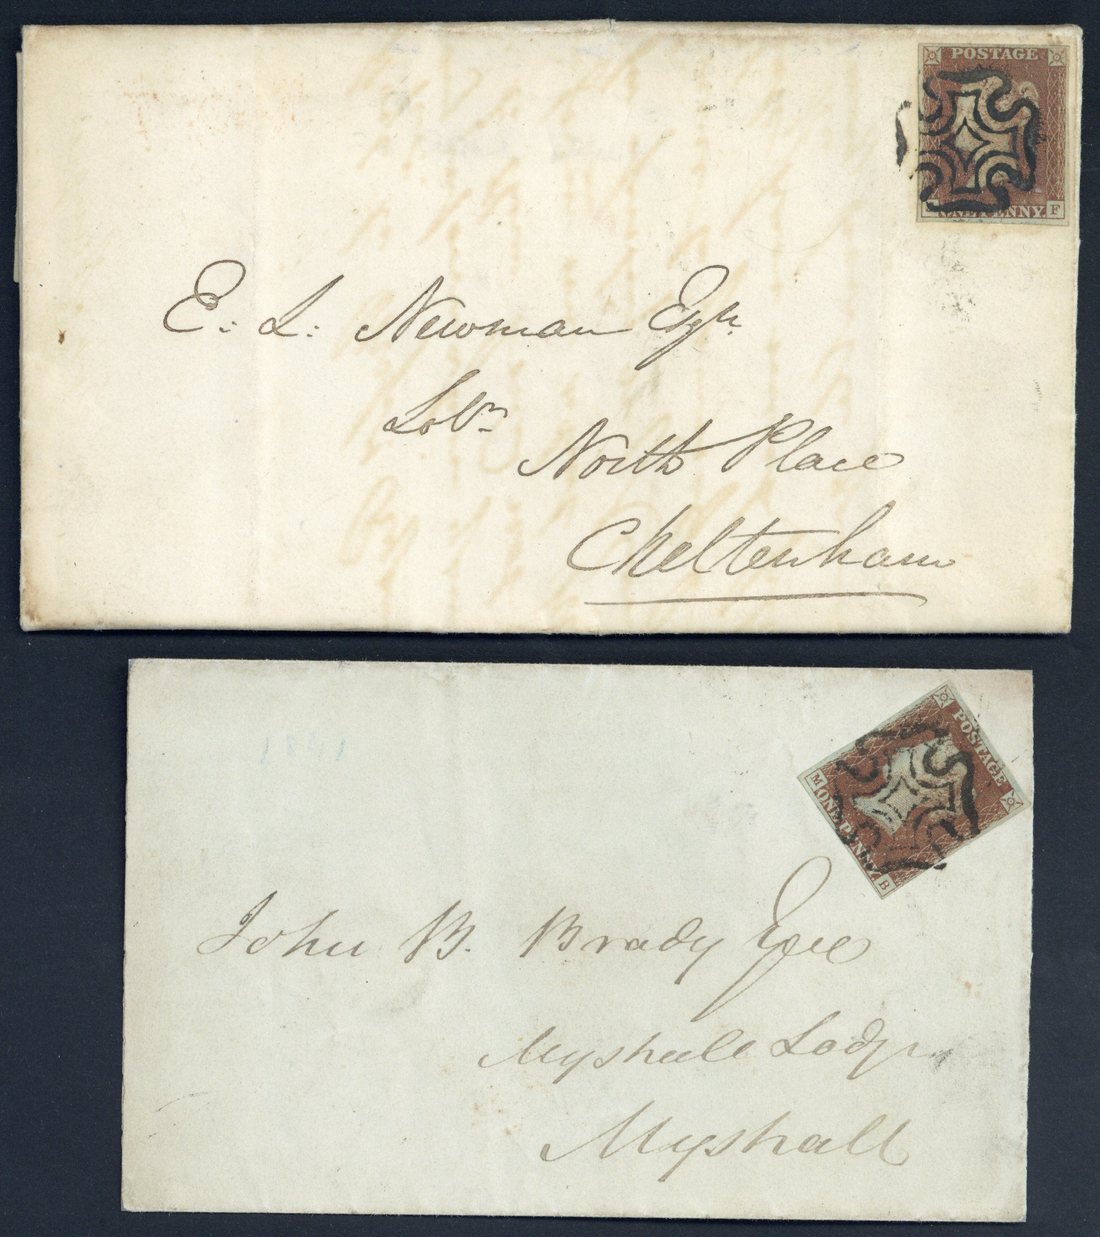 POSTAGE
ONE PENNY F
E: L: Newman Esqr
Solr
North Place
Cheltenham
1841
POSTAGE
M ONE PENNY B
John B. Brady Esqre
Myshall Lodge
Myshall